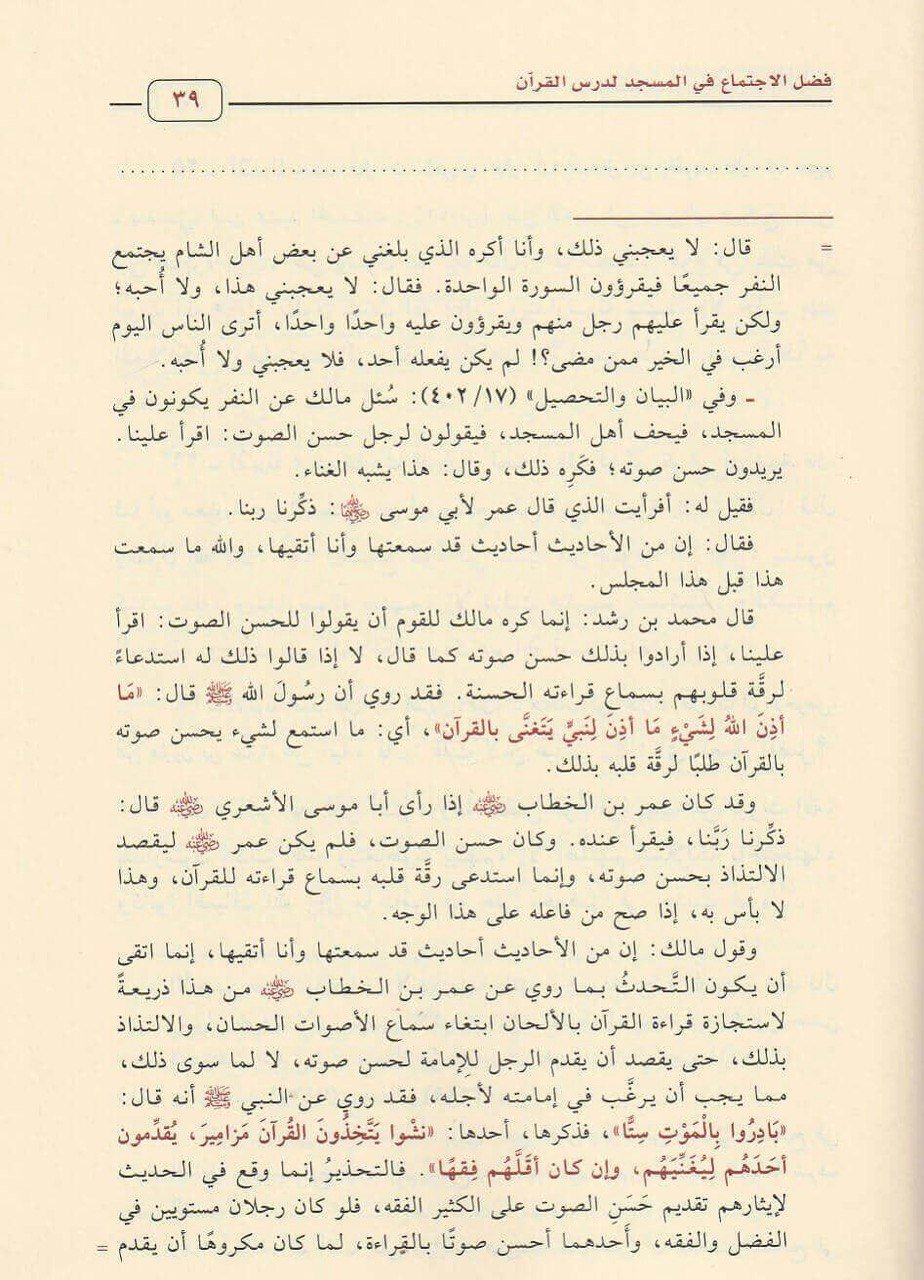 فضل الاجتماع في المسجد لدرس القرآن
٣٩
= قال: لا يعجبني ذلك، وأنا أكره الذي بلغني عن بعض أهل الشام يجتمع
النفر جميعًا فيقرؤون السورة الواحدة. فقال: لا يعجبني هذا، ولا أُحبه؛
ولكن يقرأ عليهم رجل منهم ويقرؤون عليه واحدًا واحدًا، أترى الناس اليوم
أرغب في الخير ممن مضى؟! لم يكن يفعله أحد، فلا يعجبني ولا أُحبه.
ـ وفي «البيان والتحصيل» (٤٠٢/١٧): سُئل مالك عن النفر يكونون في
المسجد، فيحف أهل المسجد، فيقولون لرجل حسن الصوت: اقرأ علينا.
يريدون حسن صوته؛ فكَرِه ذلك، وقال: هذا يشبه الغناء.
فقيل له: أفرأيت الذي قال عمر لأبي موسى رضي الله عنهما: ذكِّرنا ربنا.
فقال: إن من الأحاديث أحاديث قد سمعتها وأنا أتقيها، والله ما سمعت
هذا قبل هذا المجلس.
قال محمد بن رشد: إنما كره مالك للقوم أن يقولوا للحسن الصوت: اقرأ
علينا، إذا أرادوا بذلك حسن صوته كما قال، لا إذا قالوا ذلك له استدعاءً
لرقَّة قلوبهم بسماع قراءته الحسنة. فقد روي أن رسُولَ الله ﷺ قال: «مَا
أذِنَ اللهُ لِشَيْءٍ مَا أذِنَ لِنَبيٍّ يَتَغنَّى بالقرآن»، أي: ما استمع لشيء يحسن صوته
بالقرآن طلبًا لرقَّة قلبه بذلك.
وقد كان عمر بن الخطاب رضي الله عنه إذا رأى أبا موسى الأشعري رضي الله عنه قال:
ذكِّرنا رَبَّنا، فيقرأ عنده. وكان حسن الصوت، فلم يكن عمر رضي الله عنه ليقصد
الالتذاذ بحسن صوته، وإنما استدعى رقَّة قلبه بسماع قراءته للقرآن، وهذا
لا بأس به، إذا صح من فاعله على هذا الوجه.
وقول مالك: إن من الأحاديث أحاديث قد سمعتها وأنا أتقيها، إنما اتقى
أن يكون التَّحدثُ بما روي عن عمر بن الخطاب رضي الله عنه من هذا ذريعةً
لاستجازة قراءة القرآن بالألحان ابتغاء سماع الأصوات الحسان، والالتذاذ
بذلك، حتى يقصد أن يقدم الرجل للإمامة لحسن صوته، لا لما سوى ذلك،
مما يجب أن يرغَّب في إمامته لأجله، فقد روي عن النبي ﷺ أنه قال:
«بَادِرُوا بِالْمَوْتِ سِتًّا»، فذكرها، أحدها: «نشْوا يَتَّخِذُونَ القُرآنَ مَزامِيرَ، يُقدِّمون
أحَدَهُم لِيُغَنِّيَهُم، وإن كان أقَلَّهُم فِقهًا». فالتحذيرُ إنما وقع في الحديث
لإيثارهم تقديم حَسَنِ الصوت على الكثير الفقه، فلو كان رجلان مستويين في
الفضل والفقه، وأَحدهما أحسن صوتًا بالقراءة، لما كان مكروهًا أن يقدم =